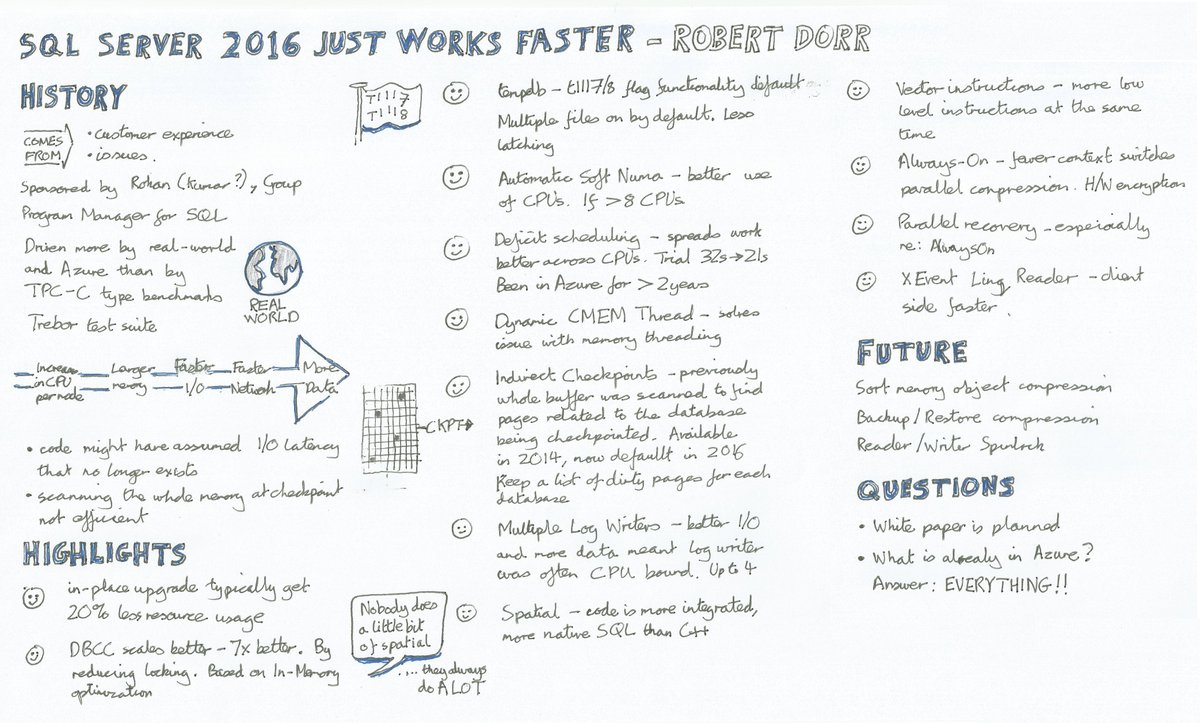 SQL SERVER 2016 JUST WORKS FASTER - ROBERT DORR
HISTORY
COMES
FROM
• customer experience
• issues.
Sponsored by Rohan (Kumar?), Group
Program Manager for SQL
Driven more by real-world
and Azure than by
TPC-C type benchmarks
Trebor test suite
REAL
WORLD
Increase
in CPU
per node
Larger
memory
Faster
I/O
Faster
Network
More
Data
• code might have assumed I/O latency
that no longer exists
• scanning the whole memory at checkpoint
not efficient
HIGHLIGHTS
in-place upgrade typically get
20% less resource usage
DBCC scales better - 7x better. By
reducing locking. Based on In-Memory
optimization
T1117
T1118
tempdb - t1117/8 flag functionality default
Multiple files on by default. Less
latching
Automatic Soft Numa - better use
of CPU's. If >8 CPU's
Deficit scheduling - spreads work
better across CPU's. Trial 32s→21s
Been in Azure for >2 years
Dynamic CMEM Thread - solves
issue with memory threading
CKPT→
Indirect Checkpoints - previously
whole buffer was scanned to find
pages related to the database
being checkpointed. Available
in 2014, now default in 2016
Keep a list of dirty pages for each
database
Multiple Log Writers - better I/O
and more data meant log writer
was often CPU bound. Up to 4
Nobody does
a little bit
of spatial
.... they always
do A LOT
Spatial - code is more integrated,
more native SQL than C++
Vector instructions - more low
level instructions at the same
time
Always-On - fewer context switches
parallel compression. H/W encryption
Parallel recovery - especially
re: AlwaysOn
XEvent Linq Reader - client
side faster.
FUTURE
Sort memory object compression
Backup/Restore compression
Reader/Writer Spinlock
QUESTIONS
• White paper is planned
• What is already in Azure?
Answer: EVERYTHING!!